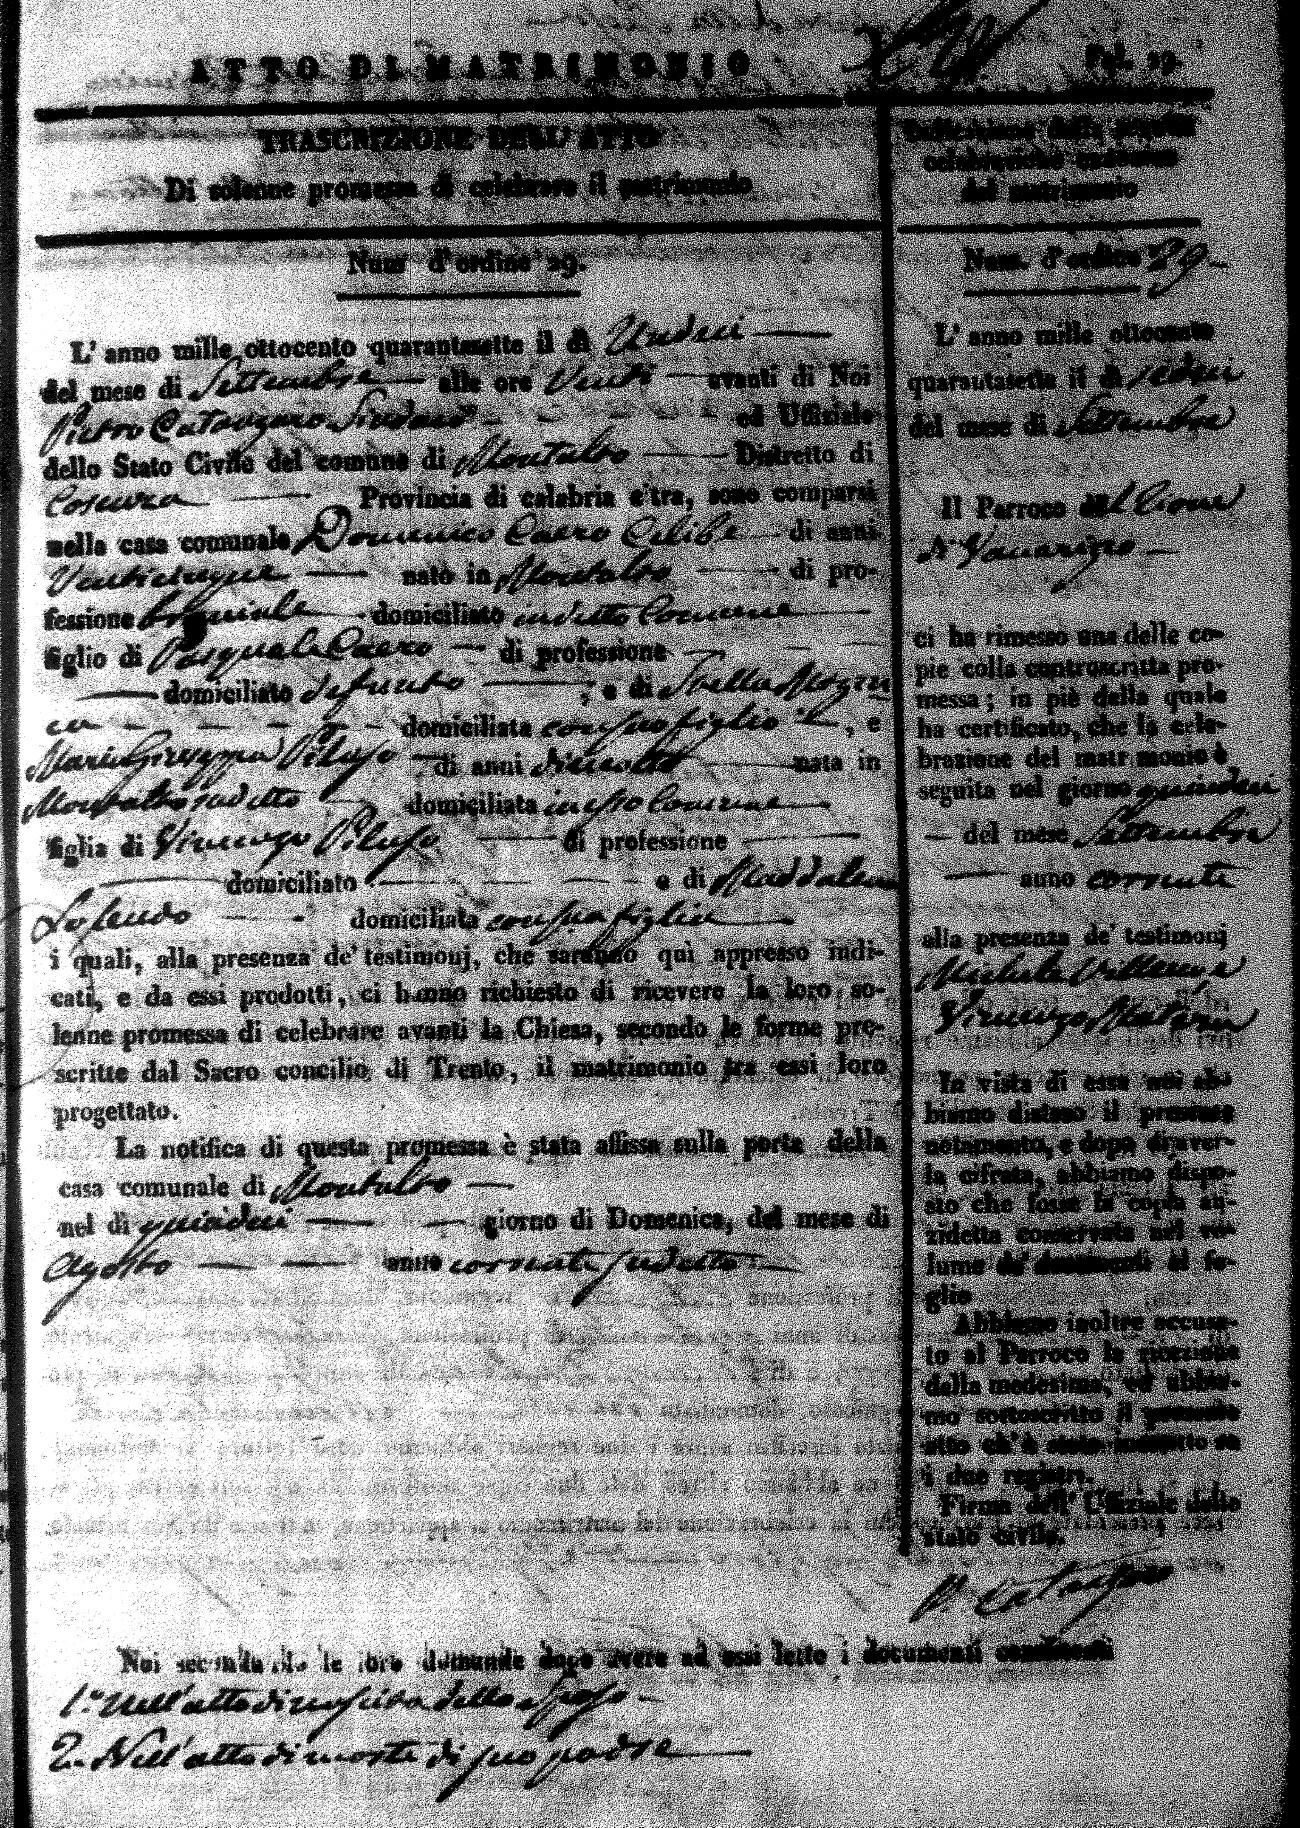 ATTO DI MATRIMONIO
Fol. 29.
TRASCRIZIONE DELL' ATTO
Di solenne promessa di celebrare il matrimonio
Num d'ordine 29.
L' anno mille ottocento quarantasette il dì Undici
del mese di Settembre alle ore Venti avanti di Noi
Pietro Catanzaro Sindaco ed Uffiziale
dello Stato Civile del comune di Montalto Distretto di
Cosenza Provincia di calabria c'tra, sono comparsi
nella casa comunale Domenico Caero Celibe di anni
Venticinque nato in Montalto di pro-
fessione domiciliato in detto Comune
figlio di Pasquale Caero di professione
domiciliato defunto , e di
domiciliata con suo figlio , e
Maria Giuseppa Piluso di anni dieciotto nata in
Montalto sudetto domiciliata in esso Comune
figlia di Vincenzo Piluso di professione
domiciliato e di Maddalena
domiciliata con sua figlia
i quali, alla presenza de' testimonj, che saranno quì appresso indi-
cati, e da essi prodotti, ci hanno richiesto di ricevere la loro so-
lenne promessa di celebrare avanti la Chiesa, secondo le forme pre-
scritte dal Sacro concilio di Trento, il matrimonio tra essi loro
progettato.
La notifica di questa promessa è stata affissa sulla porta della
casa comunale di Montalto
nel dì quindici giorno di Domenica, del mese di
Agosto anno corrente sudetto
del matrimonio
Num. d'ordine 29
L' anno mille ottocento
quarantasette il dì sedici
del mese di Settembre
Il Parroco
ci ha rimesso una delle co-
pie colla controscritta pro-
messa; in piè della quale
ha certificato, che la cele-
brazione del matrimonio è
seguita nel giorno quindici
del mese Settembre
anno corrente
alla presenza de' testimonj
Michele
Vincenzo
In vista di essa noi ab-
biamo disteso il presente
notamento, e dopo di aver-
la cifrata, abbiamo dispo-
sto che fosse la copia an-
zidetta conservata nel vo-
lume de' documenti al fo-
glio
Abbiamo inoltre accusa-
to al Parroco la ricezione
della medesima, ed abbia-
mo sottoscritto il presente
atto ch'è stato inscritto su
i due registri.
Firma dell' Uffiziale dello
stato civile.
P. Catanzaro
Noi secondando le loro domande dopo avere ad essi letto i documenti consistenti
1.° Nell'atto di nascita dello Sposo
2. Nell'atto di morte di suo padre